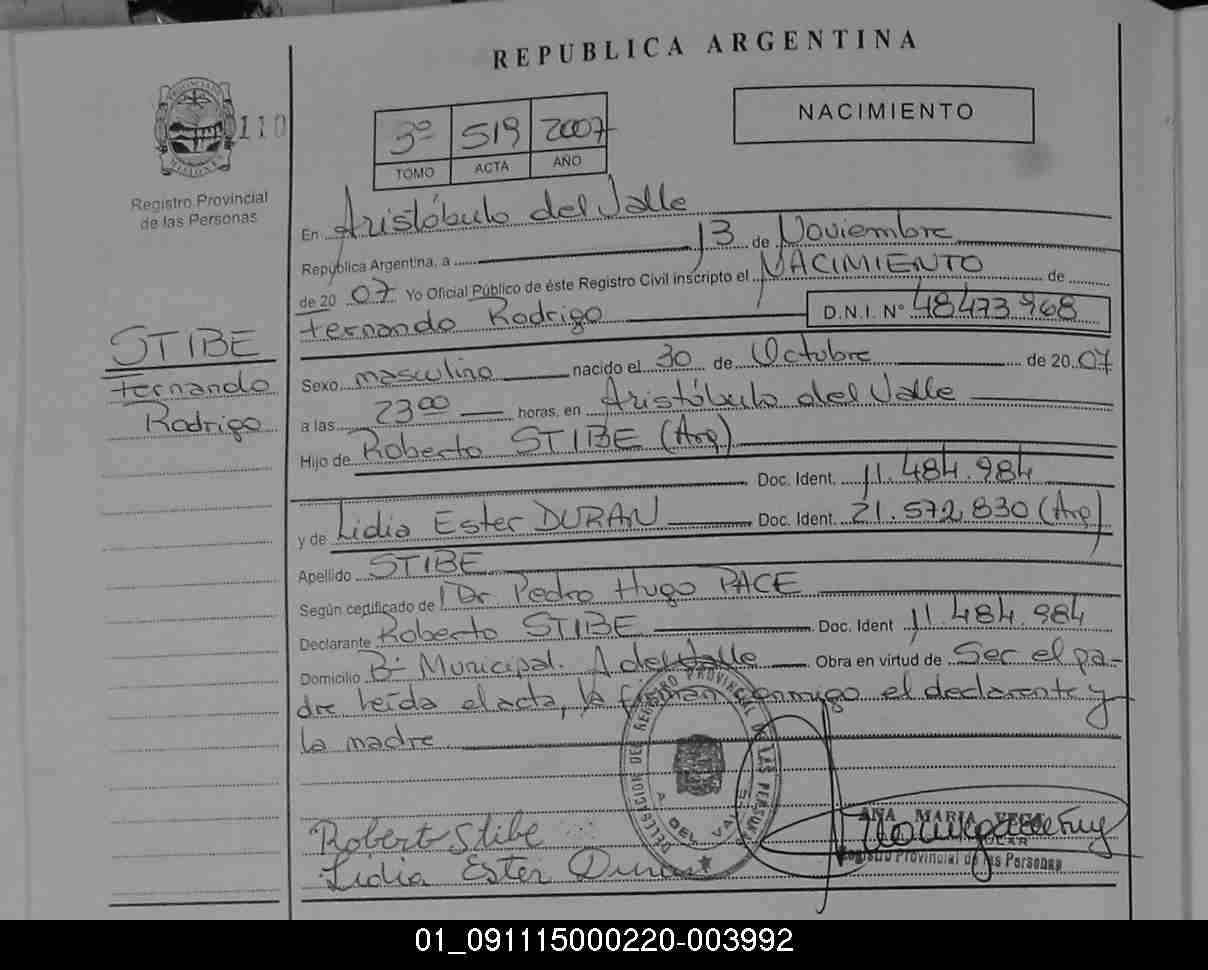 REPUBLICA ARGENTINA
110
NACIMIENTO
3º 519 2007
TOMO ACTA AÑO
Registro Provincial
de las Personas
En Aristóbulo del Valle
República Argentina, a 13 de Noviembre
de 20 07 Yo Oficial Público de éste Registro Civil inscripto el NACIMIENTO de
Fernando Rodrigo D.N.I. Nº 48473968
STIBE
Fernando
Rodrigo
Sexo masculino nacido el 30 de Octubre de 20 07
a las 23 00 horas, en Aristóbulo del Valle
Hijo de Roberto STIBE (Arg)
Doc. Ident. 11.484.984
y de Lidia Ester DURAN Doc. Ident. 21.572.830 (Arg)
Apellido STIBE
Según certificado de Dr Pedro Hugo PACE
Declarante Roberto STIBE Doc. Ident 11.484.984
Domicilio Bº Municipal. A del Valle Obra en virtud de Ser el pa-
dre leída el acta, la firman conmigo el declarante y
la madre
DELEGACION DEL REGISTRO PROVINCIAL DE LAS PERSONAS
A. DEL VALLE
Robert Stibe
Lidia Ester Duran
ANA MARIA VEGA
Registro Provincial de las Personas
01_091115000220-003992